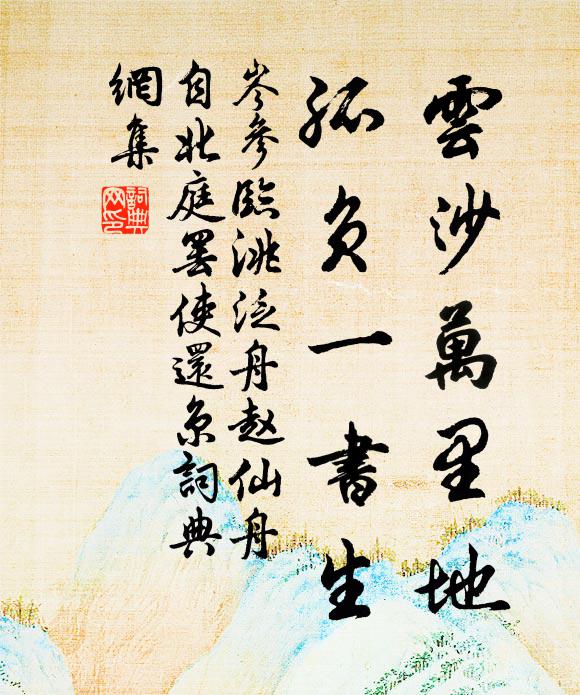 雲沙萬里地
孤負一書生
岑參臨洮泛舟趙仙舟
自北庭罷使還京詞典
網集
詞典
网印